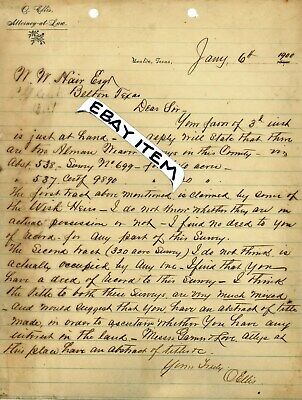 O. Ellis,
Attorney-at-Law.
Marlin, Texas, Jany 6th 1900
W. W. Hair Esqr
Belton Texas
Dear Sir
Your favor of 3d inst
is just at hand reply will State that there
are two in the County
Abst 538 - Survey No 699 - acres
" 537 Certf 9890
The first tract above mentioned is claimed by some of
the Heirs - I do not know whether they are in
actual possession or not - I find no deed to you
of record for any part of this Survey.
The Second tract (320 acre Survey) I do not think is
actually occupied by any one - I find that You
have a deed of record to this Survey - I think
the title to both these Surveys are very much mixed
and would suggest that You have an abstract of title
made, in order to ascertain whether You have any
interest in the land - Messrs & Love Attys at
this place have an abstract of titles &c
Yours Truly
O Ellis
EBAY ITEM